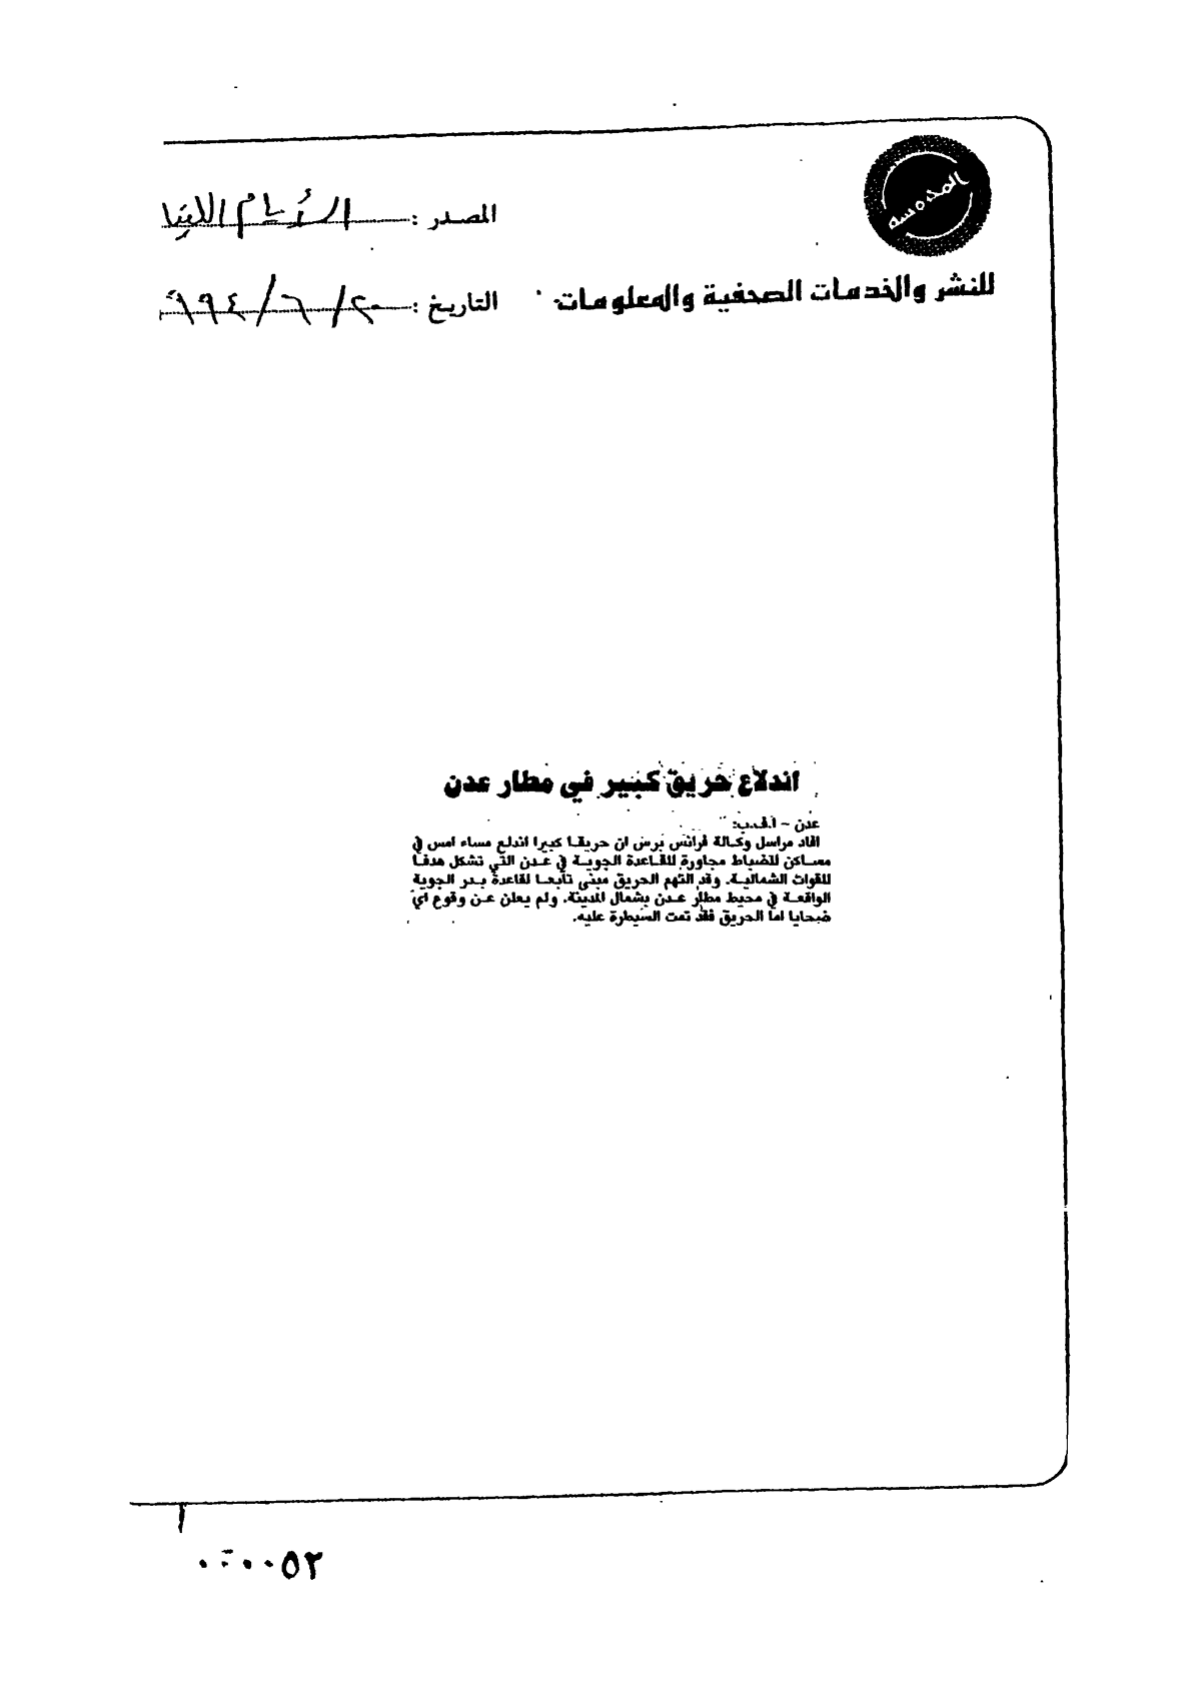 المحروسة
للنشر والخدمات الصحفية والمعلومات
المصدر : الأيام
التاريخ : ٢٠/٦/١٩٩٤
اندلاع حريق كبير في مطار عدن
عدن - ا.ف.ب:
افاد مراسل وكالة فرانس برس ان حريقا كبيرا اندلع مساء امس في
مساكن للضباط مجاورة للقاعدة الجوية في عدن التي تشكل هدفا
للقوات الشمالية. وقد التهم الحريق مبنى تابعا لقاعدة بدر الجوية
الواقعة في محيط مطار عدن بشمال المدينة. ولم يعلن عن وقوع اي
ضحايا اما الحريق فقد تمت السيطرة عليه.